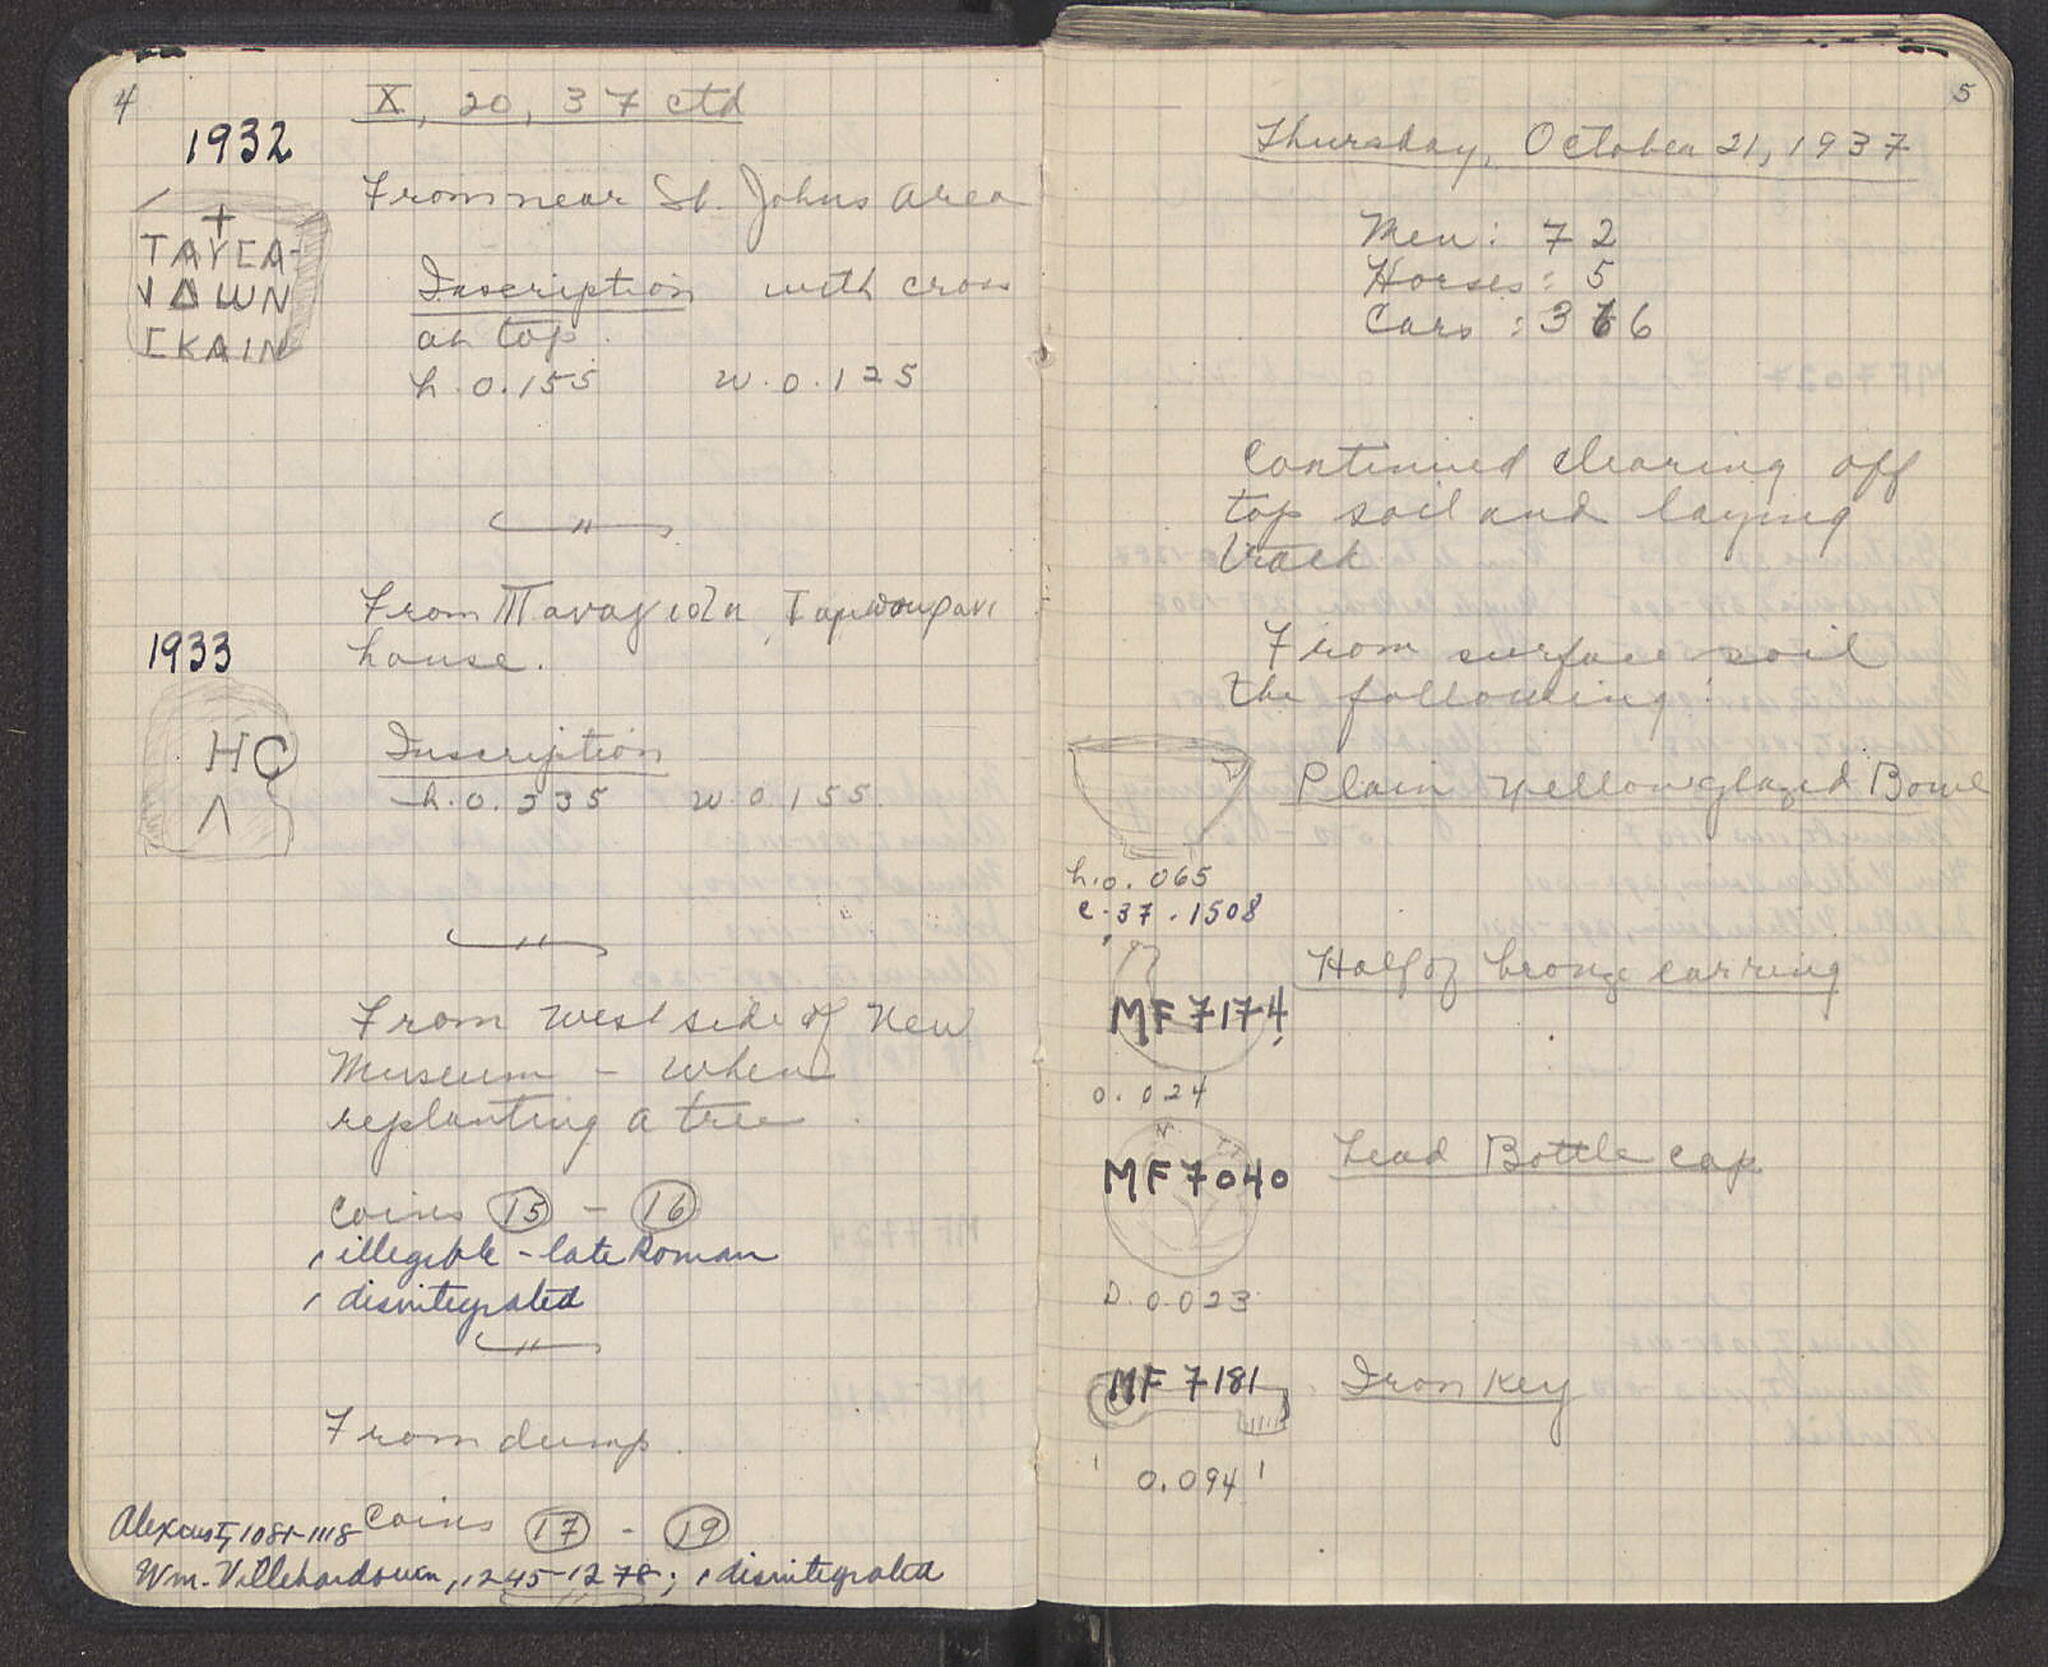 4
X, 20, 37 ctd
1932
From near St. Johns area
+
ΤΑΥΕΑ-
ΔWN
ΕΚΑΙΝ
Inscription with cross
on top.
h. 0.155 w. 0.125
From
house.
1933
HC
Λ
Inscription
h. 0.235 w. 0.155.
From west side of New
Museum – when
replanting a tree.
Coins 15 – 16
1 illegible - late Roman
1 disintegrated
From dump.
Coins 17 - 19
Alexius I, 1081-1118
Wm. Villehardouin, 1245-1278; 1 disintegrated
5
Thursday, October 21, 1937
Men: 72
Horses: 5
Cars: 366
Continued clearing off
top soil and laying
track
From surface soil
the following:
Plain yellow glazed Bowl
h. 0.065
C·37·1508
Half of bronze earring
MF 7174
0.024
Lead Bottle cap
MF 7040
D. 0.023
MF 7181
Iron Key
0.094